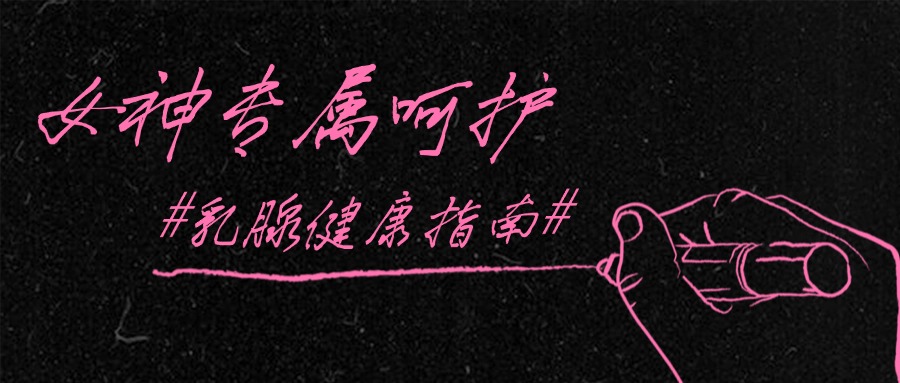 女神专属呵护
#乳腺健康指南#